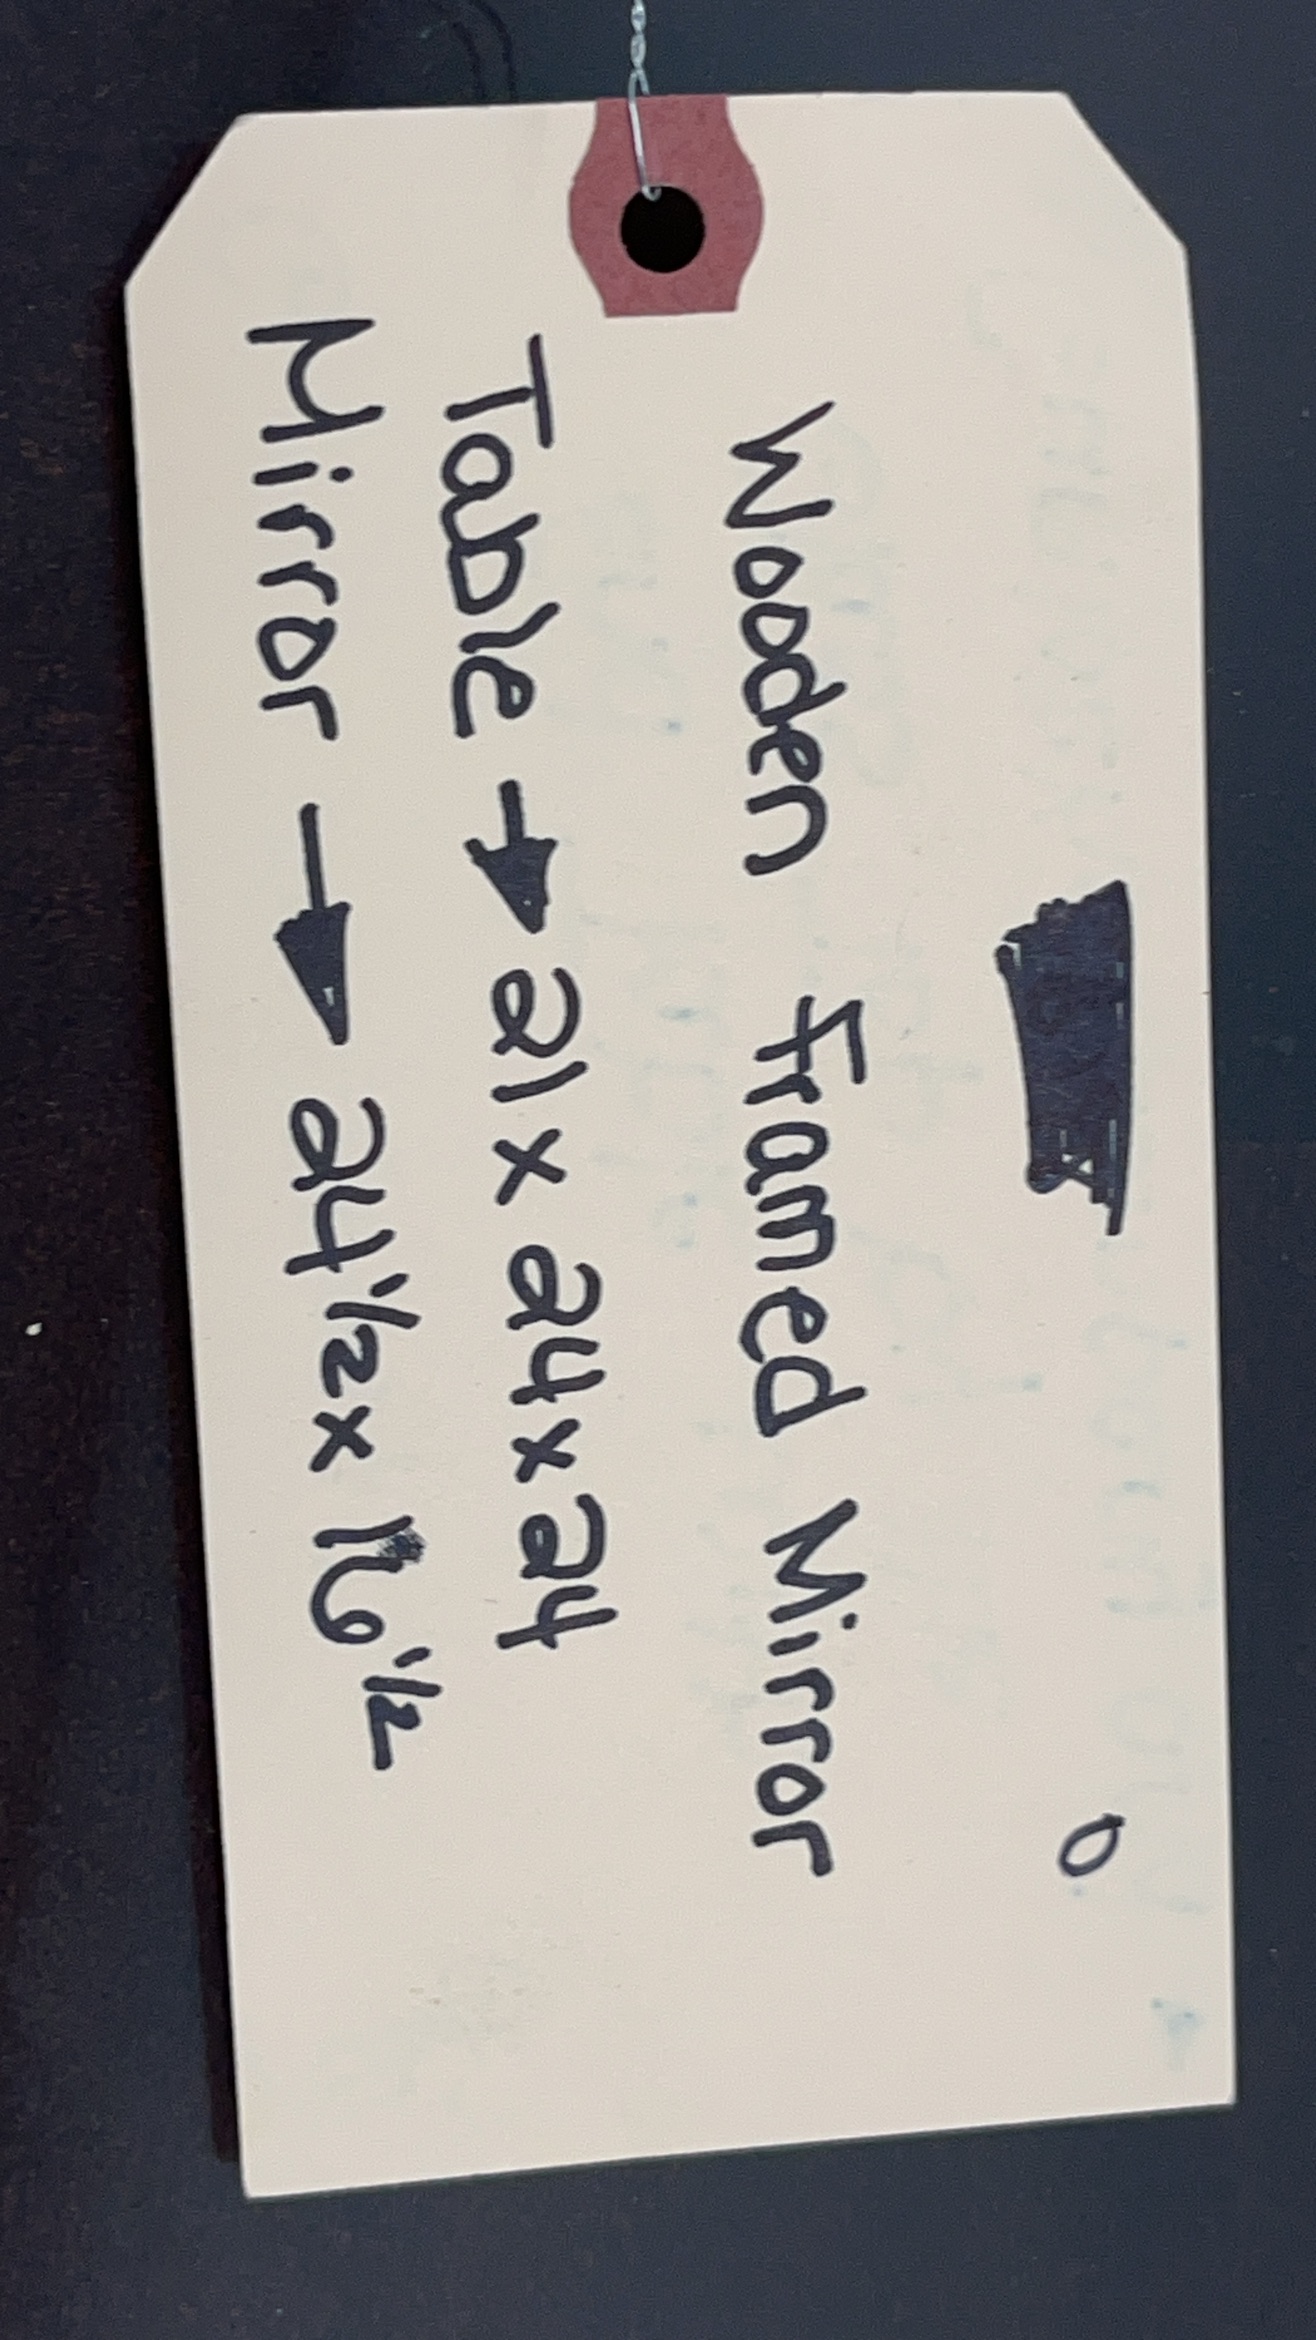 Wooden Framed Mirror
Table → 21 x 24 x 24
Mirror → 24 1/2 x 16 1/2